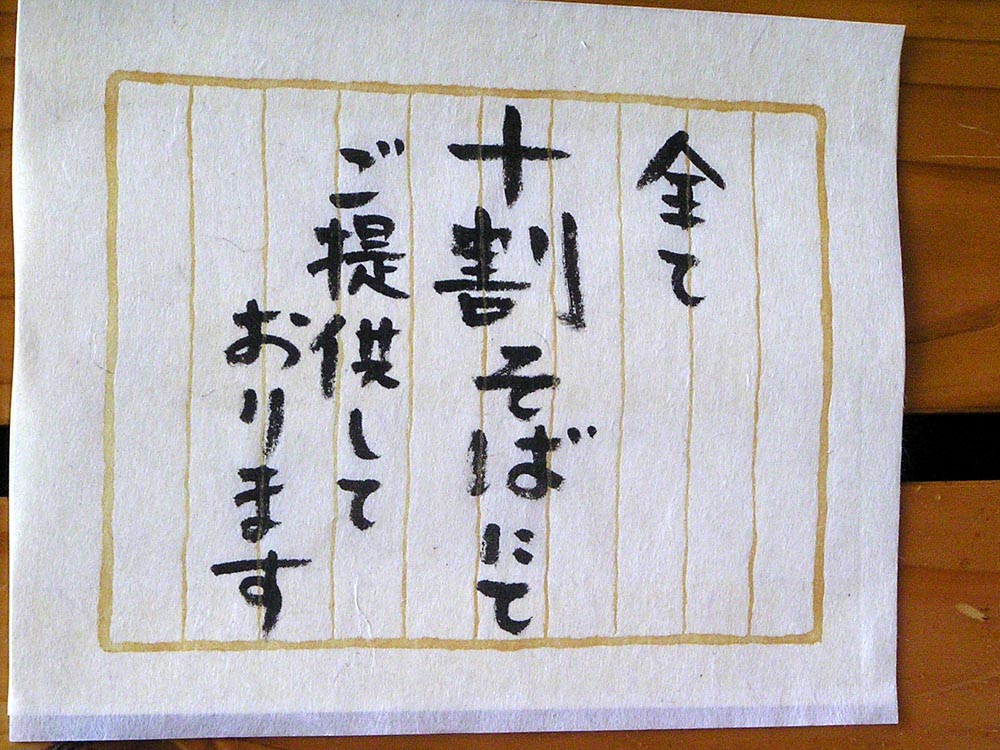 全て
十割そばにて
ご提供して
おります